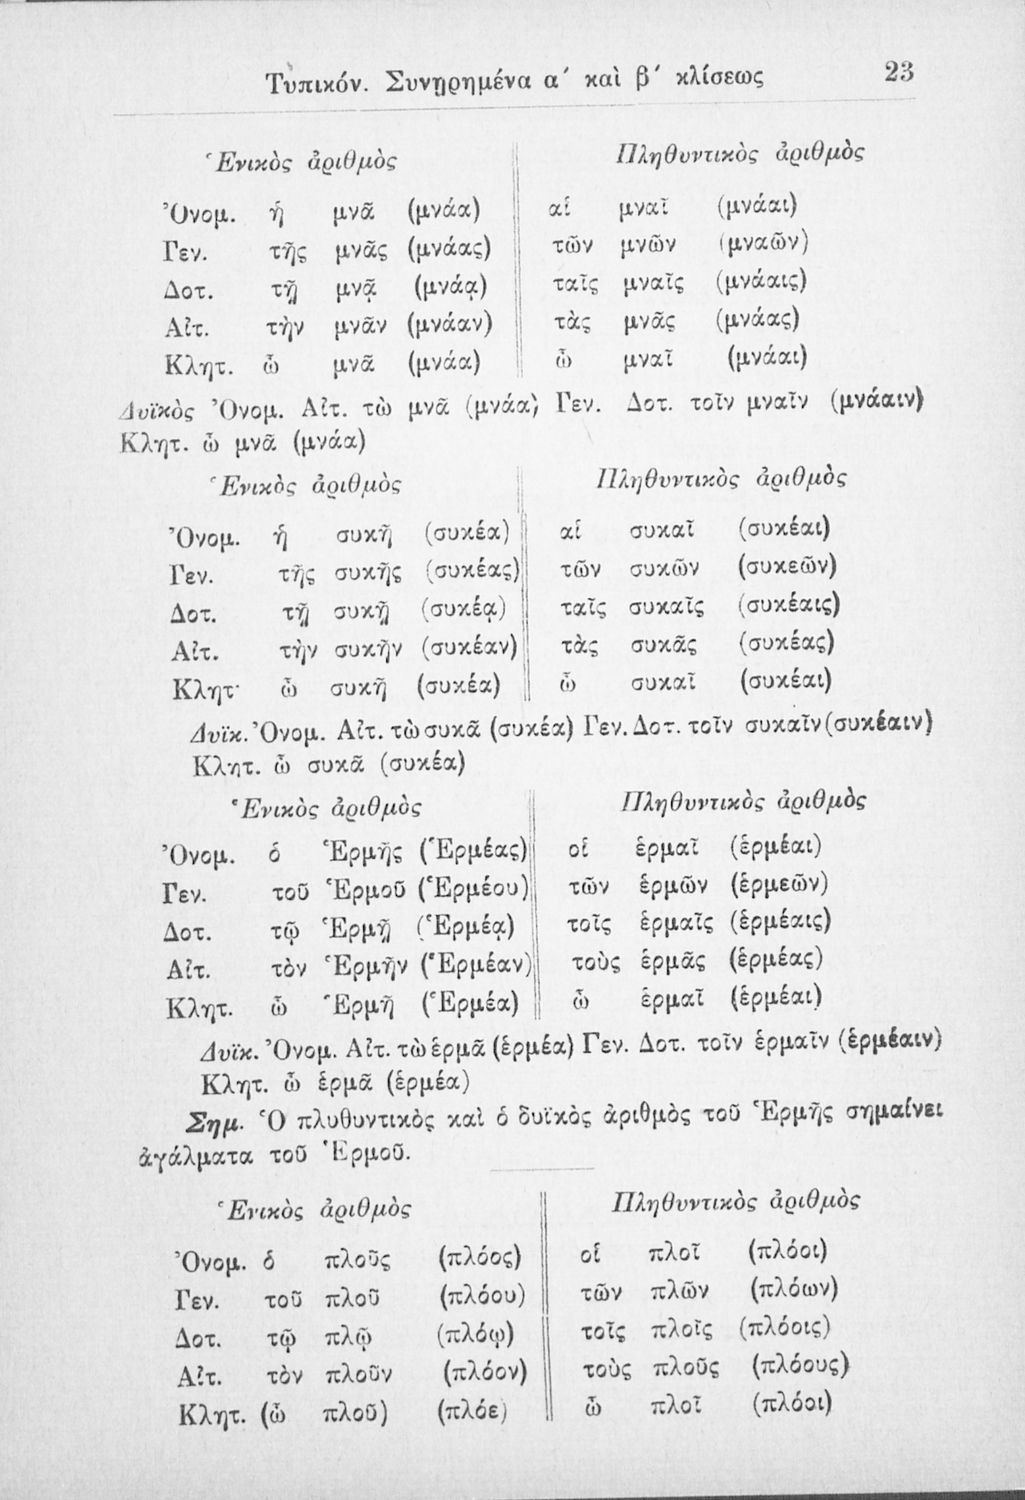 Τυπικόν. Συνῃρημένα α΄ καὶ β΄ κλίσεως 23
Ἑνικὸς ἀριθμὸς Πληθυντικὸς ἀριθμὸς
Ὀνομ. ἡ μνᾶ (μνάα) αἱ μναῖ (μνάαι)
Γεν. τῆς μνᾶς (μνάας) τῶν μνῶν (μναῶν)
Δοτ. τῇ μνᾷ (μνάᾳ) ταῖς μναῖς (μνάαις)
Αἰτ. τὴν μνᾶν (μνάαν) τὰς μνᾶς (μνάας)
Κλητ. ὦ μνᾶ (μνάα) ὦ μναῖ (μνάαι)
Δυϊκὸς Ὀνομ. Αἰτ. τὼ μνᾶ (μνάα) Γεν. Δοτ. τοῖν μναῖν (μνάαιν)
Κλητ. ὦ μνᾶ (μνάα)
Ἑνικὸς ἀριθμὸς Πληθυντικὸς ἀριθμὸς
Ὀνομ. ἡ συκῆ (συκέα) αἱ συκαῖ (συκέαι)
Γεν. τῆς συκῆς (συκέας) τῶν συκῶν (συκεῶν)
Δοτ. τῇ συκῇ (συκέᾳ) ταῖς συκαῖς (συκέαις)
Αἰτ. τὴν συκῆν (συκέαν) τὰς συκᾶς (συκέας)
Κλητ· ὦ συκῆ (συκέα) ὦ συκαῖ (συκέαι)
Δυϊκ. Ὀνομ. Αἰτ. τὼ συκᾶ (συκέα) Γεν. Δοτ. τοῖν συκαῖν (συκέαιν)
Κλητ. ὦ συκᾶ (συκέα)
Ἑνικὸς ἀριθμὸς Πληθυντικὸς ἀριθμὸς
Ὀνομ. ὁ Ἑρμῆς (Ἑρμέας) οἱ ἑρμαῖ (ἑρμέαι)
Γεν. τοῦ Ἑρμοῦ (Ἑρμέου) τῶν ἑρμῶν (ἑρμεῶν)
Δοτ. τῷ Ἑρμῇ (Ἑρμέᾳ) τοῖς ἑρμαῖς (ἑρμέαις)
Αἰτ. τὸν Ἑρμῆν (Ἑρμέαν) τοὺς ἑρμᾶς (ἑρμέας)
Κλητ. ὦ Ἑρμῆ (Ἑρμέα) ὦ ἑρμαῖ (ἑρμέαι)
Δυϊκ. Ὀνομ. Αἰτ. τὼ ἑρμᾶ (ἑρμέα) Γεν. Δοτ. τοῖν ἑρμαῖν (ἑρμέαιν)
Κλητ. ὦ ἑρμᾶ (ἑρμέα)
Σημ. Ὁ πλυθυντικὸς καὶ ὁ δυϊκὸς ἀριθμὸς τοῦ Ἑρμῆς σημαίνει
ἀγάλματα τοῦ Ἑρμοῦ.
Ἑνικὸς ἀριθμὸς Πληθυντικὸς ἀριθμὸς
Ὀνομ. ὁ πλοῦς (πλόος) οἱ πλοῖ (πλόοι)
Γεν. τοῦ πλοῦ (πλόου) τῶν πλῶν (πλόων)
Δοτ. τῷ πλῷ (πλόῳ) τοῖς πλοῖς (πλόοις)
Αἰτ. τὸν πλοῦν (πλόον) τοὺς πλοῦς (πλόους)
Κλητ. (ὦ πλοῦ) (πλόε) ὦ πλοῖ (πλόοι)